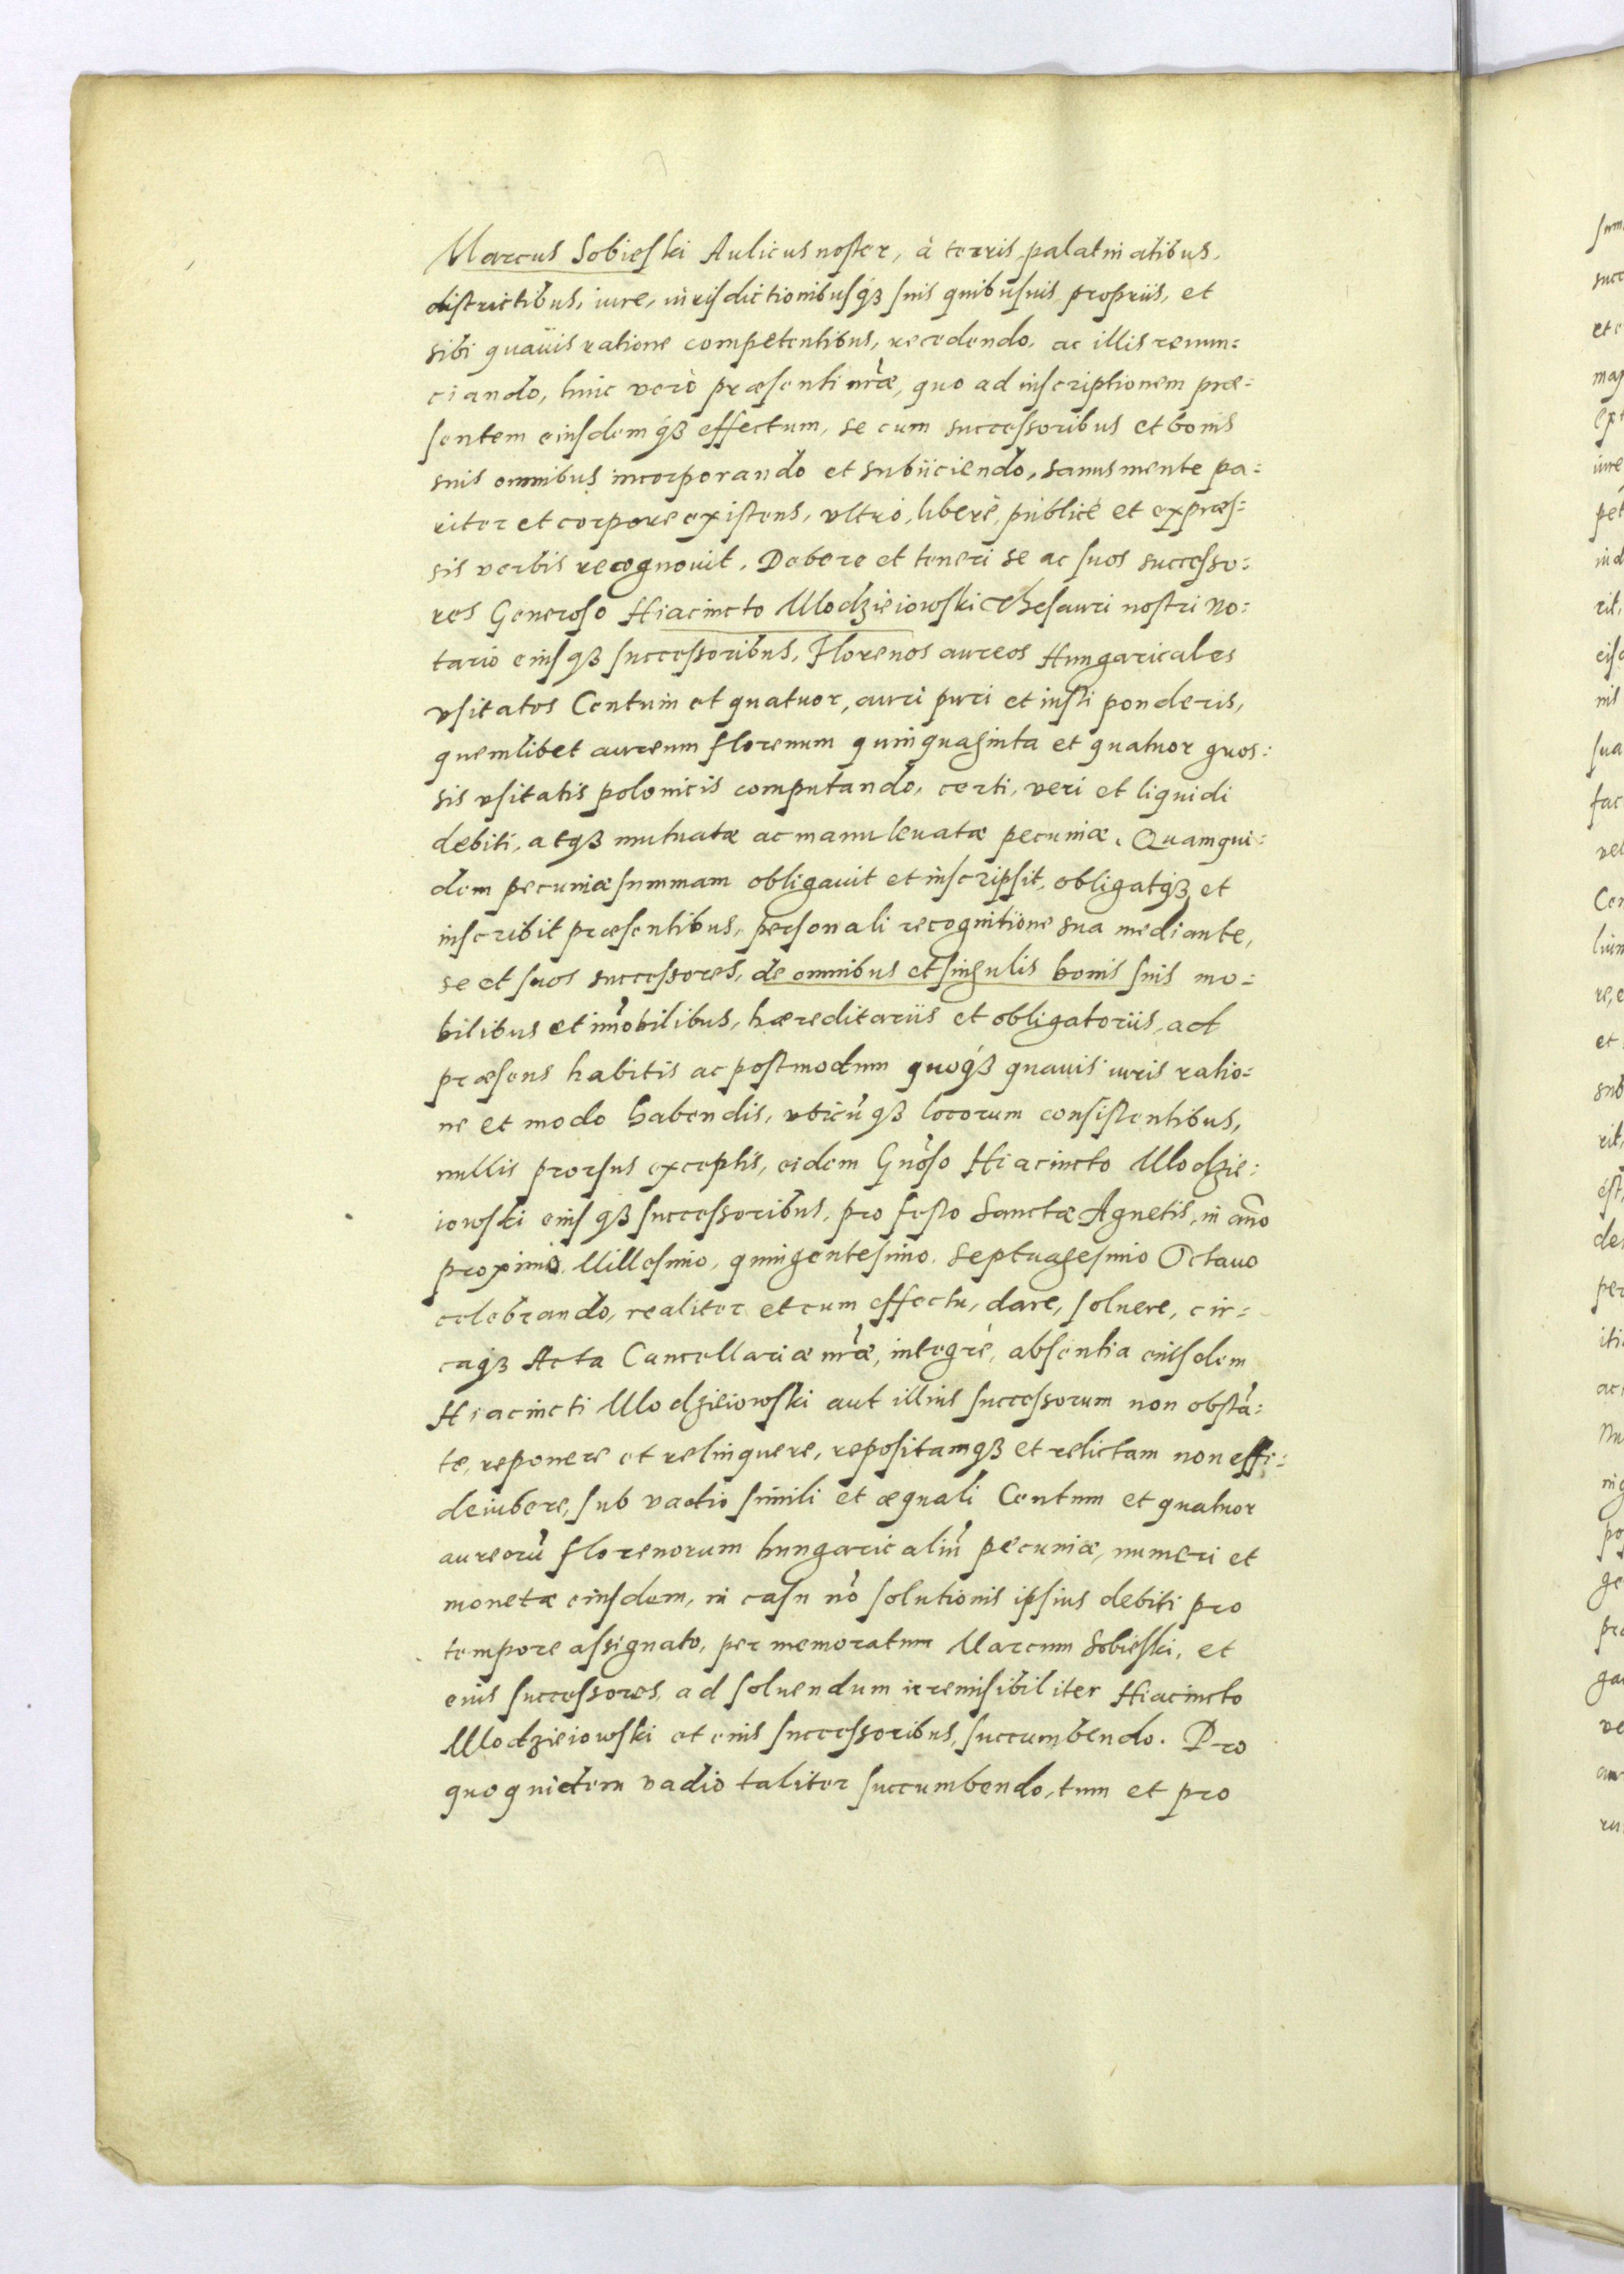 Marcus Sobieski Aulicus noster, à terris, palatinatibus,
districtibus, iure, iurisdictionibusq́ꝫ suis quibusuis proprijs, et
sibi quauis ratione competentibus, recedendo, ac illis renun:
ciando, huic verò præsenti nr̃æ, quo ad inscriptionem præ:
sentem eiusdemq́ꝫ effectum, se cum successoribus et bonis
suis omnibus incorporando et subijciendo, sanus mente pa:
riter et corpore existens, vltrò, liberè, publicè et expres:
sis verbis recognouit. Debere et teneri se ac suos successo:
res Generoso Hiacincto Mlodzieiowski Thesauri nostri No:
tario eiusqꝫ successoribus, Florenos aureos Hungaricales
vsitatos Centum et quatuor, auri puri et iusti ponderis,
quemlibet aureum florenum quinquaginta et quatuor gros:
sis vsitatis polonicis computando, certi, veri et liquidi
debiti, atqꝫ mutuatæ ac manuleuatæ pecuniæ. Quamqui:
dem pecuniæ summam obligauit et inscripsit, obligatq́ꝫ et
inscribit præsentibus, personali recognitione sua mediante,
se et suos successores, de omnibus et singulis bonis suis mo:
bilibus et im̃obilibus, hæreditarijs et obligatorijs, ad
præsens habitis ac postmodum quoq́ꝫ quauis iuris ratio:
ne et modo habendis, vbicũqꝫ locorum consistentibus,
nullis prorsus exceptis, eidem Gñoso Hiacincto Mlodzie:
iowski eiusqꝫ successoribus, pro festo Sanctæ Agnetis, in año
proximo Millesimo, quingentesimo, Septuagesimo Octauo
celebrando, realiter et cum effectu, dare, soluere, cir:
caqꝫ Acta Cancellariæ nr̃æ, integrè, absentia eiusdem
Hiacincti Mlodzieiowski aut illius successorum non obstã:
te, reponere et relinquere, repositamqꝫ et relictam non effi:
deiubere, sub vadio simili et æquali Centum et quatuor
aureorũ florenorum hungaricaliũ pecuniæ, numeri et
monetæ eiusdem, in casu nõ solutionis ipsius debiti pro
tempore assignato, per memoratum Marcum Sobieski, et
eius successores, ad soluendum irremisibiliter Hiacincto
Mlodzieiowski et eius successoribus, succumbendo. Pro
quo quidem vadio taliter succumbendo, tum et pro